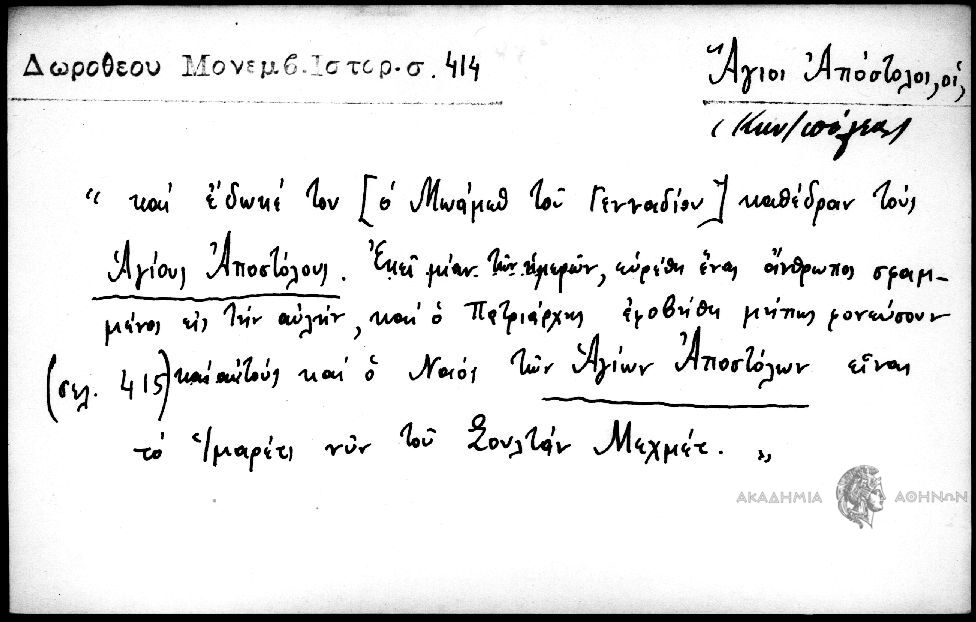 Δωροθεου Μονεμβ. Ιστορ. σ. 414
Ἅγιοι Ἀπόστολοι, οἱ,
(Κων/πόλεως)
“ καί ἔδωκέ τον [ὁ Μωάμεθ τοῦ Γενναδίου] καθέδραν τούς
Ἁγίους Ἀποστόλους. Ἐκεῖ μίαν τῶν ἡμερῶν, εὑρέθη ἕνας ἄνθρωπος σφαμ-
μένος εἰς τήν αὐλήν, καί ὁ Πατριάρχης ἐφοβήθη μήπως φονεύσουν
(σελ. 415) καί αὐτούς καί ὁ Ναός τῶν Ἁγίων Ἀποστόλων εἶναι
τό Ἰμαρέτι νῦν τοῦ Σουλτάν Μεχμέτ. „
ΑΚΑΔΗΜΙΑ ΑΘΗΝΩΝ